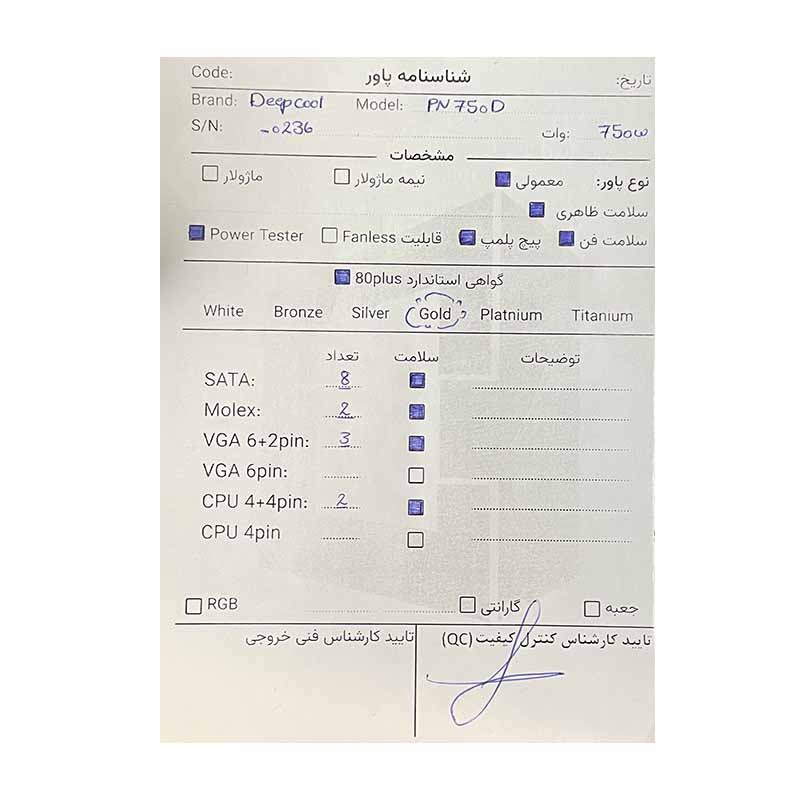 Code: شناسنامه پاور تاریخ:
Brand: Deepcool Model: PN750D
S/N: -0236 وات: 750W
مشخصات
نوع پاور: معمولی نیمه ماژولار ماژولار
سلامت ظاهری
سلامت فن پیچ پلمپ قابلیت Fanless Power Tester
گواهی استاندارد 80plus
White Bronze Silver Gold Platnium Titanium
تعداد سلامت توضیحات
SATA: 8
Molex: 2
VGA 6+2pin: 3
VGA 6pin:
CPU 4+4pin: 2
CPU 4pin
RGB گارانتی جعبه
تایید کارشناس کنترل کیفیت (QC) تایید کارشناس فنی خروجی